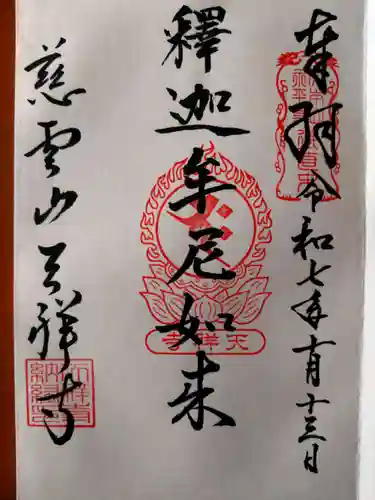 奉拝
令和七年十月十三日
釋迦牟尼如来
慈雲山天祥寺
天祥寺